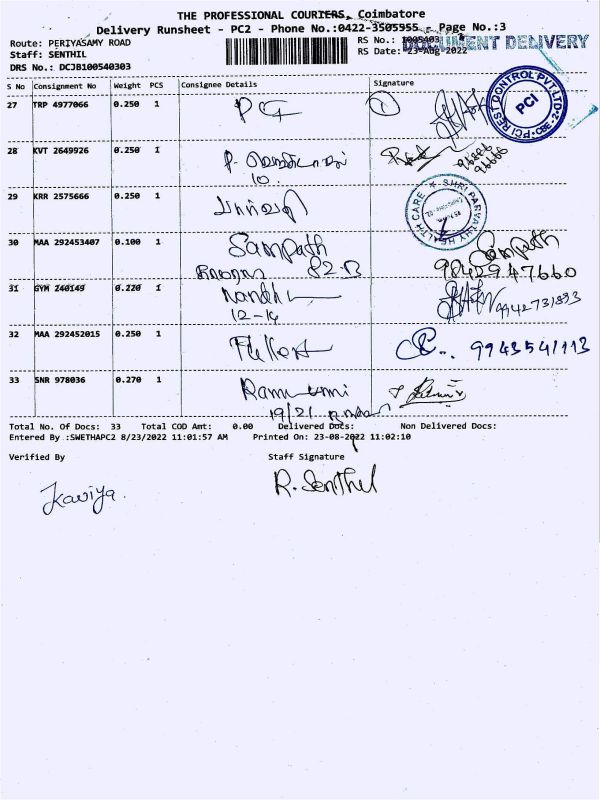 THE PROFESSIONAL COURIERS, Coimbatore
Delivery Runsheet - PC2 - Phone No.:0422-3505955 - Page No.:3
Route: PERIYASAMY ROAD
Staff: SENTHIL
DRS No.: DCJB100540303
RS No.: 1005403
RS Date: 23-Aug-2022
DOCUMENT DELIVERY
S No Consignment No Weight PCS Consignee Details Signature
27 TRP 4977066 0.250 1
PCI PEST CONTROL PVT.LTD. CBE-24
PCI
28 KVT 2649926 0.250 1
10
29 KRR 2575666 0.250 1
SHRI PARVATHY HEALTH CARE
30 MAA 292453407 0.100 1 Sampath Sampath
82-B 9842947660
31 GYM 240149 0.220 1 Nandhu 9942731893
12-14
32 MAA 292452015 0.250 1 9943541113
33 SNR 978036 0.270 1
19/21
Total No. Of Docs: 33 Total COD Amt: 0.00 Delivered Docs: Non Delivered Docs:
Entered By :SWETHAPC2 8/23/2022 11:01:57 AM Printed On: 23-08-2022 11:02:10
Verified By Staff Signature
Kaviya. R. Senthil